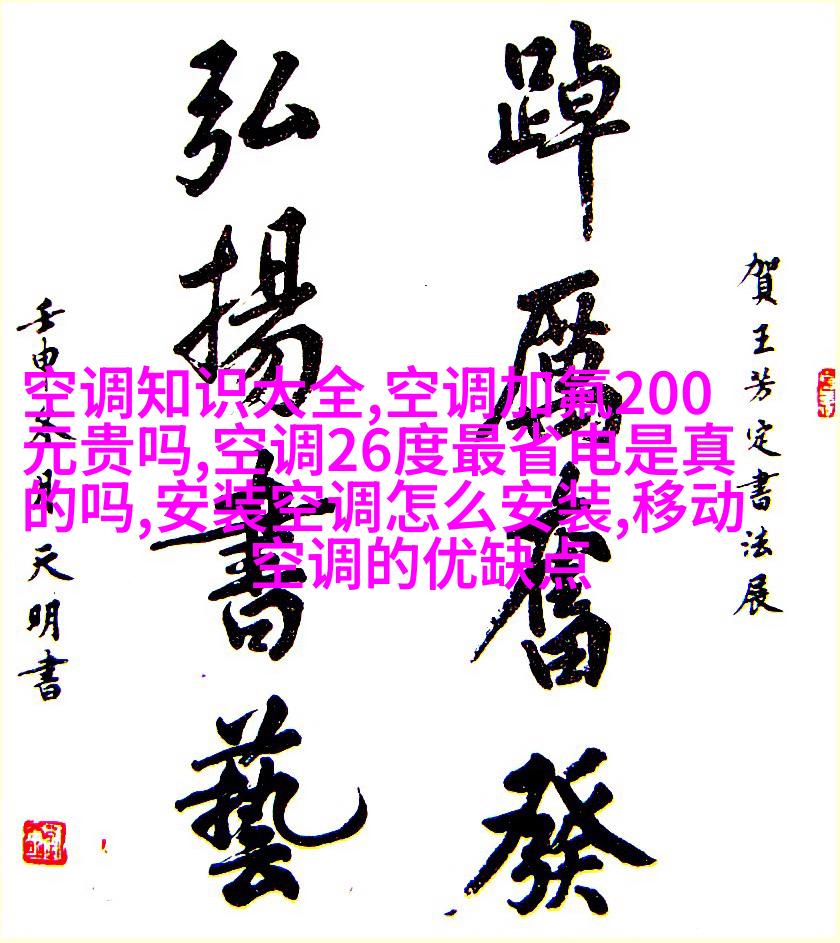 賀王芳定書法展
踔厲奮發
弘揚書藝
壬申冬月天明書
空调知识大全,空调加氟200
元贵吗,空调26度最省电是真
的吗,安装空调怎么安装,移动
空调的优缺点